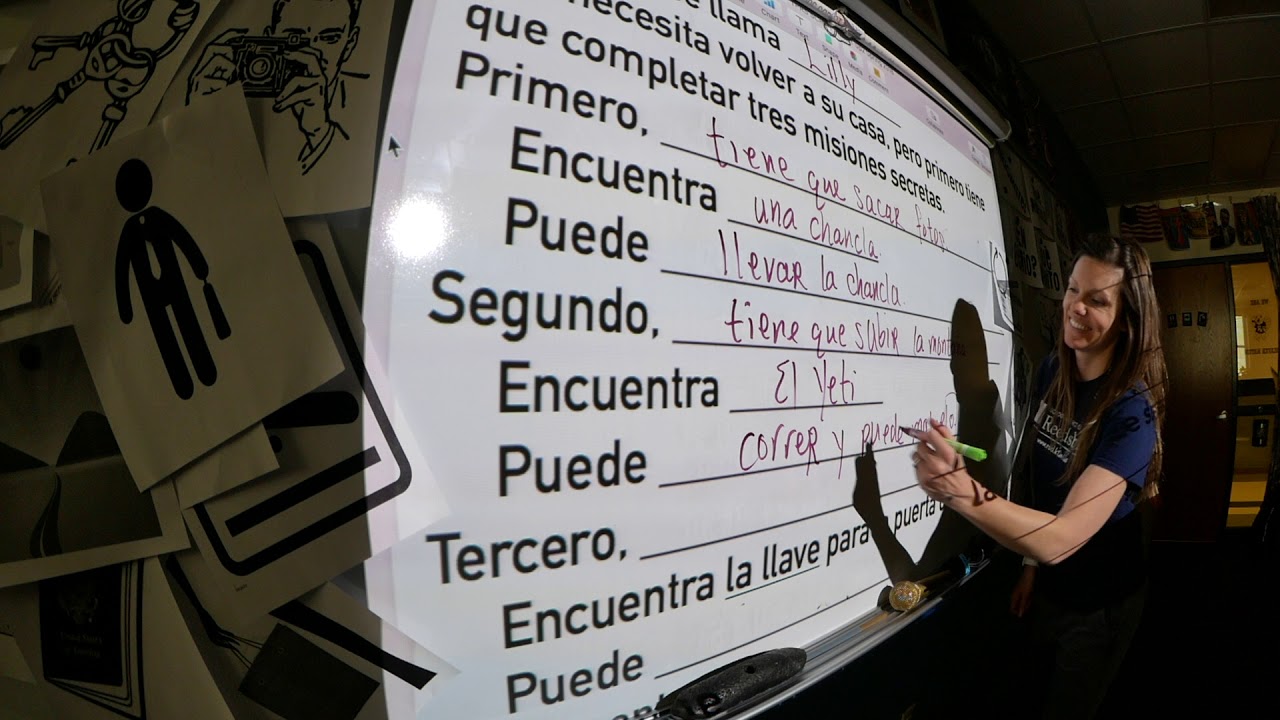 llama Lilly
necesita volver a su casa, pero primero tiene
que completar tres misiones secretas.
Primero, tiene que sacar fotos
Encuentra una chancla.
Puede llevar la chancla.
Segundo, tiene que subir la
Encuentra El Yeti
Puede correr y puede
Tercero,
Encuentra la llave para puerta
Puede